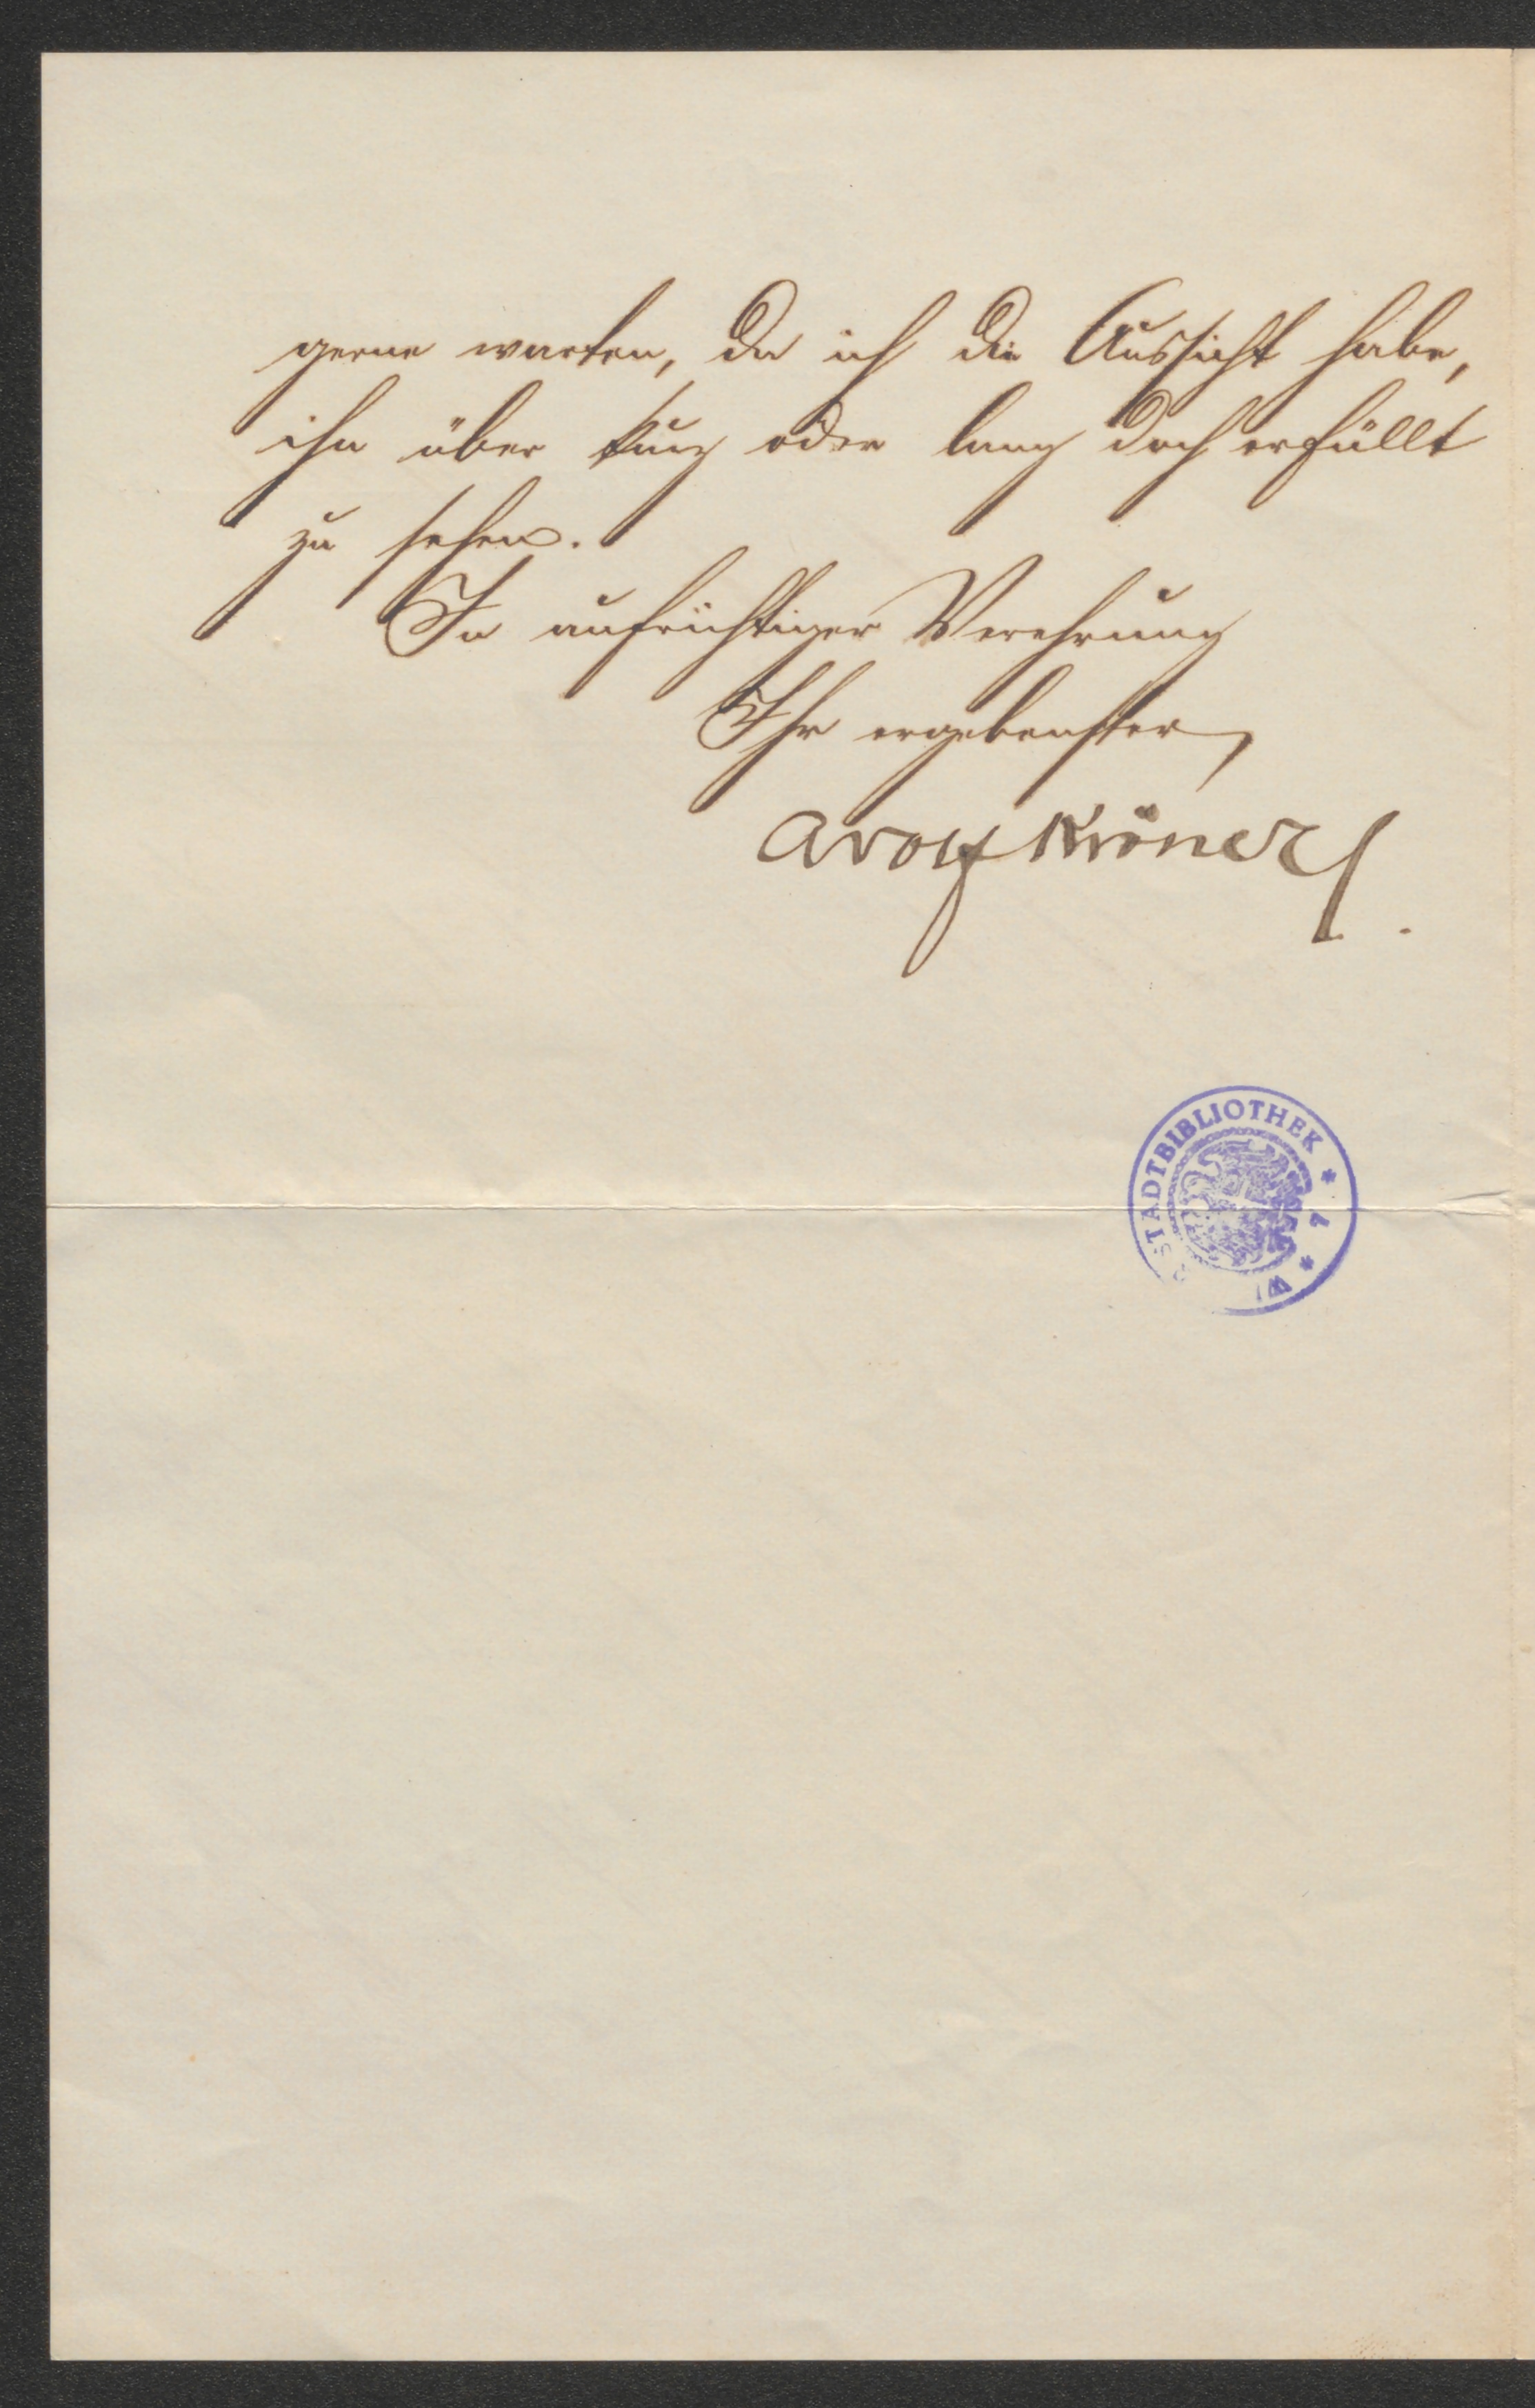 gerne warten, da ich die Aussicht habe,
ihn über kurz oder lang doch erfüllt
zu sehen.
In aufrichtiger Verehrung
Ihr ergebenster
Adolf Kröner
STADTBIBLIOTHEK * 1 *